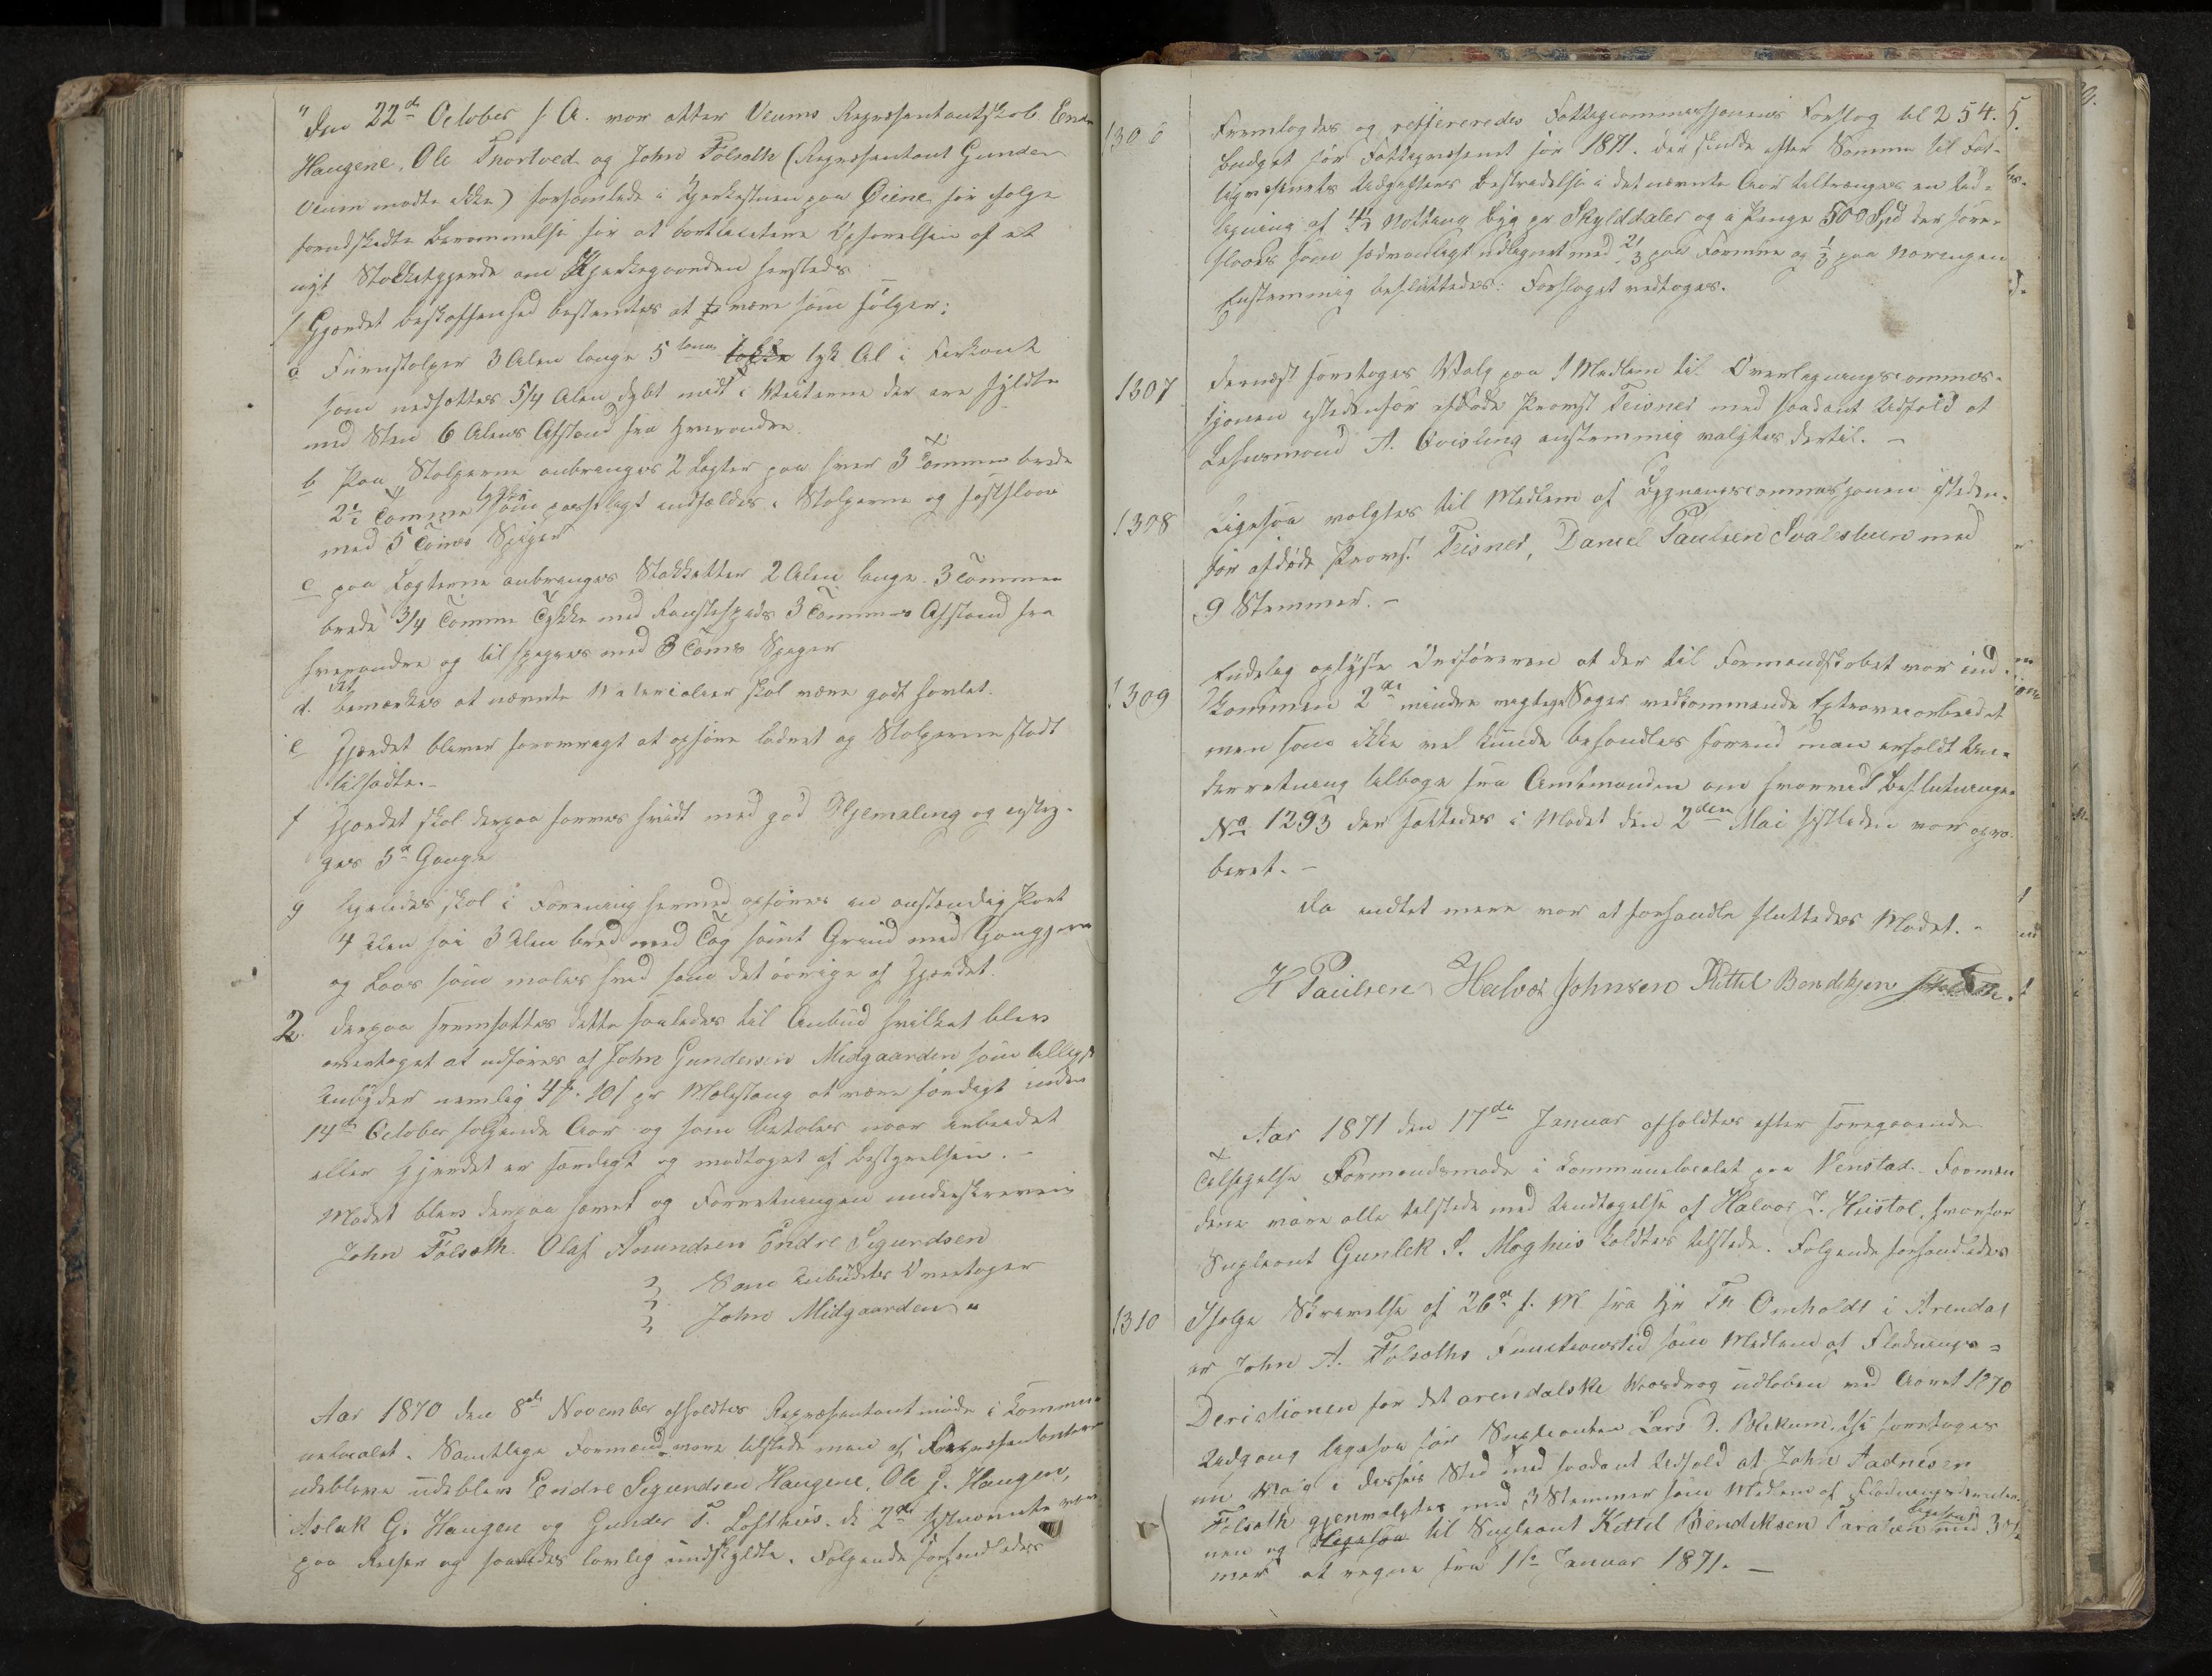 "Den 22de October f. A. var atter Veums Repræsentantskab Endre
Haugene, Ole Snortved og John Følsæth (Repræsentant Gunder
Veum mødte ikke) forsamlede i Kjerkestuen paa Øiene før følge
forudskedte Berammelse før at bortlicitere Opførelsen af et
nyt Stakketgjerde om Kjerkegaarden hersteds
1 Gjerdet beskaffenhed bestemtes at være som følger:
a Furustolper 3 Alen lange 5 Tom tyk Al i Firkant
som nedsættes 5/4 Alen dybt midt i Veiterne der ere fyldte
med Sten 6 Alens Afstand fra hverandre.
b Paa Stolperne anbringes 2 Lægter paa hver 3 Tommer brede
2½ Tomme tykke som passeligt indfældes i Stolperne og fastslaaes
med 5 Toms Spiger
c paa Lægterne anbringes Stakketter 2 Alen lange 3 Tommer
brede 3/4 Tomme Tykke med 3 Tommers Afstand fra
hverandre og tilspigres med 3 Toms Spiger
d. Det bemærkes at nævnte Materialier skal være godt høvlet.
e Gjerdet bliver forøvrigt at opføre lodret og Stolperne fladt
tilhødte.
f Gjerdet skal derpaa farves hvidt med god Oljemaling og
ges 3de Gange
g ligeledes skal i Forening hermed opføres en anstændig Port
4 Alen høi 3 Alen bred med Tag samt Grind med Gangjern
og Laas som males hvid som det øvrige af Gjerdet.
2. Derpaa fremsattes dette saaledes til Anbud hvilket blev
overtaget at udføres af John Gundersen Midgaarden som billigst
Anbyder nemlig 4 10 s pr Maalstang at være færdigt inden
14de October følgende Aar og som Betales naar Arbeidet
eller Gjerdet er færdigt og modtaget af Bestyrelsen. –
Mødet blev derpaa hævet og Forretningen underskreven
John Følsæth. Olaf Amundsen Endre Sigurdsen
Som Anbudets Overtager
John Midgaarden "
Aar 1870 den 8de November afholdtes Repræsentantmøde i Kommu
nelocalet. Samtlige Formænd vare tilstede men af Repræsentanterne
udebleve Endre Sigurdsen Haugene, Ole G. Haugen,
Aslak G. Haugen og Gunder T. Lofthus. de 2de sistnævnte var
paa Reiser og saaledes lovlig undskyldte. Følgende forhandledes
1306 Fremlagdes og refereredes Fattigcommissionens Forslag til 254.5.
Budget før Fattigvæsenet før 1871. der skulde efter Samme til Fat-
tigvæsenets Udgifters Bestridelse i det nævnte Aar tiltrænges en Ud-
ligning af 4½ Potteng Byg pr Skylddaler og i Penge 500 Spd der fore-
sloges som sædvanligt udlignet med 2/3 paa Formue og 1/3 paa Næringen
Enstemmig besluttedes: Forslaget vedtages.
1307 Dernæst foretoges Valg paa 1 Medlem til Overligningscommis-
sionen istedenfor afdøde Provst Teisner med saadant Udfald at
Lehnsmand A. Qvisling enstemmig valgtes dertil. –
1308 Ligesaa valgtes til Medlem af Ligningscommissionen isteden-
før afdøde Provst Teisner, Daniel Paulsen Svalestuen med
9 Stemmer. –
1309 Endelig oplyste Ordføreren at der til Formandskabet var ind-
kommen 2de mindre vigtige Sager vedkommende Extraveiarbeidet
men som ikke vel kunde behandles førend man erholdt Un-
derretning tilbage fra Amtmanden om hvorvidt Beslutningen
No 1293 der fattedes i Mødet den 2den Mai sistleden var appro-
beret. –
Da indtet mere var at forhandle sluttedes Mødet. –
H Paulsen Halvor Johnsen Kittil Bendiksen
Aar 1871 den 17de Januar afholdtes efter foregaaende
Tilsigelse Formandsmøde i Kommunelocalet paa Venstad. Formæn
dene vare alle tilstede med Undtagelse af Halvor J. Heistol, hvorfor
Supleant Gunlek S. Moghus kaldtes tilstede. Følgende forhandledes
1310 Ifølge Skrivelse af 26de f. M. fra Hr Th Omholdt i Arendal
er John A. Følsæths Functionstid som Medlem af Flødnings-
Derictionen for det arendalske Vasdrag udløben ved Aaret 1870
Udgang ligesaa før Supleanten Lars D. Blekum. Der foretoges
nu Valg i disses Sted med saadant Udfald at John Aadnesen
Følsæth gjenvalgtes med 3 Stemmer som Medlem af Flødningsderictio-
nen og ligesaa til Supleant Kittil Bendiksen med ligesaa 3 Stem
mer at regne fra 1ste Januar 1871. –